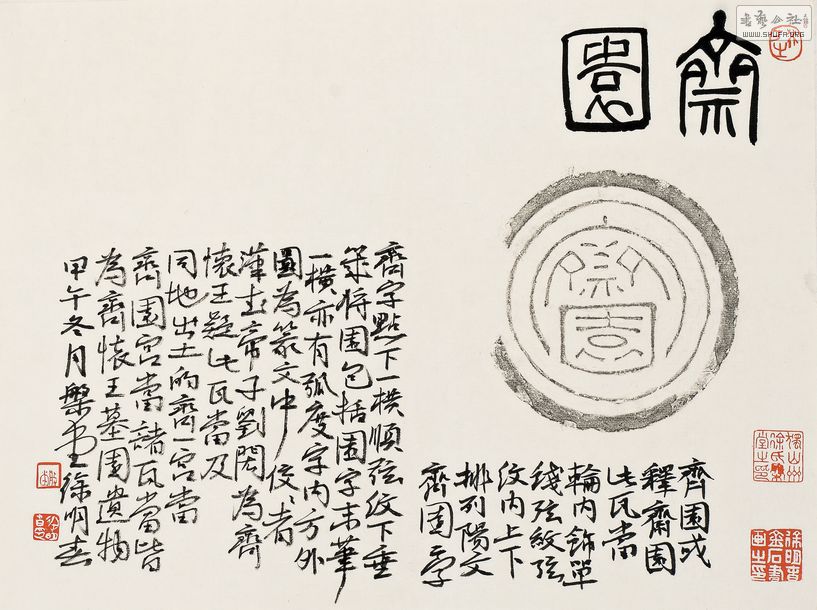 齋園
齊園或
釋齋園
此瓦當
輪內飾單
线弦紋弦
纹内上下
排列陽文
齊園字
齊字點下一横順弦纹下垂
筆將園包括園字末筆
一横亦有弧度字内方外
圓為篆文中佼佼者
漢武帝子劉閎為齊
懷王疑此瓦當及
同地出土的齊一宫當
齊園宫當諸瓦當皆
為齊懷王墓園遺物
甲午冬月槃堂徐明
書藝公社
WWW.SHUFA.ORG